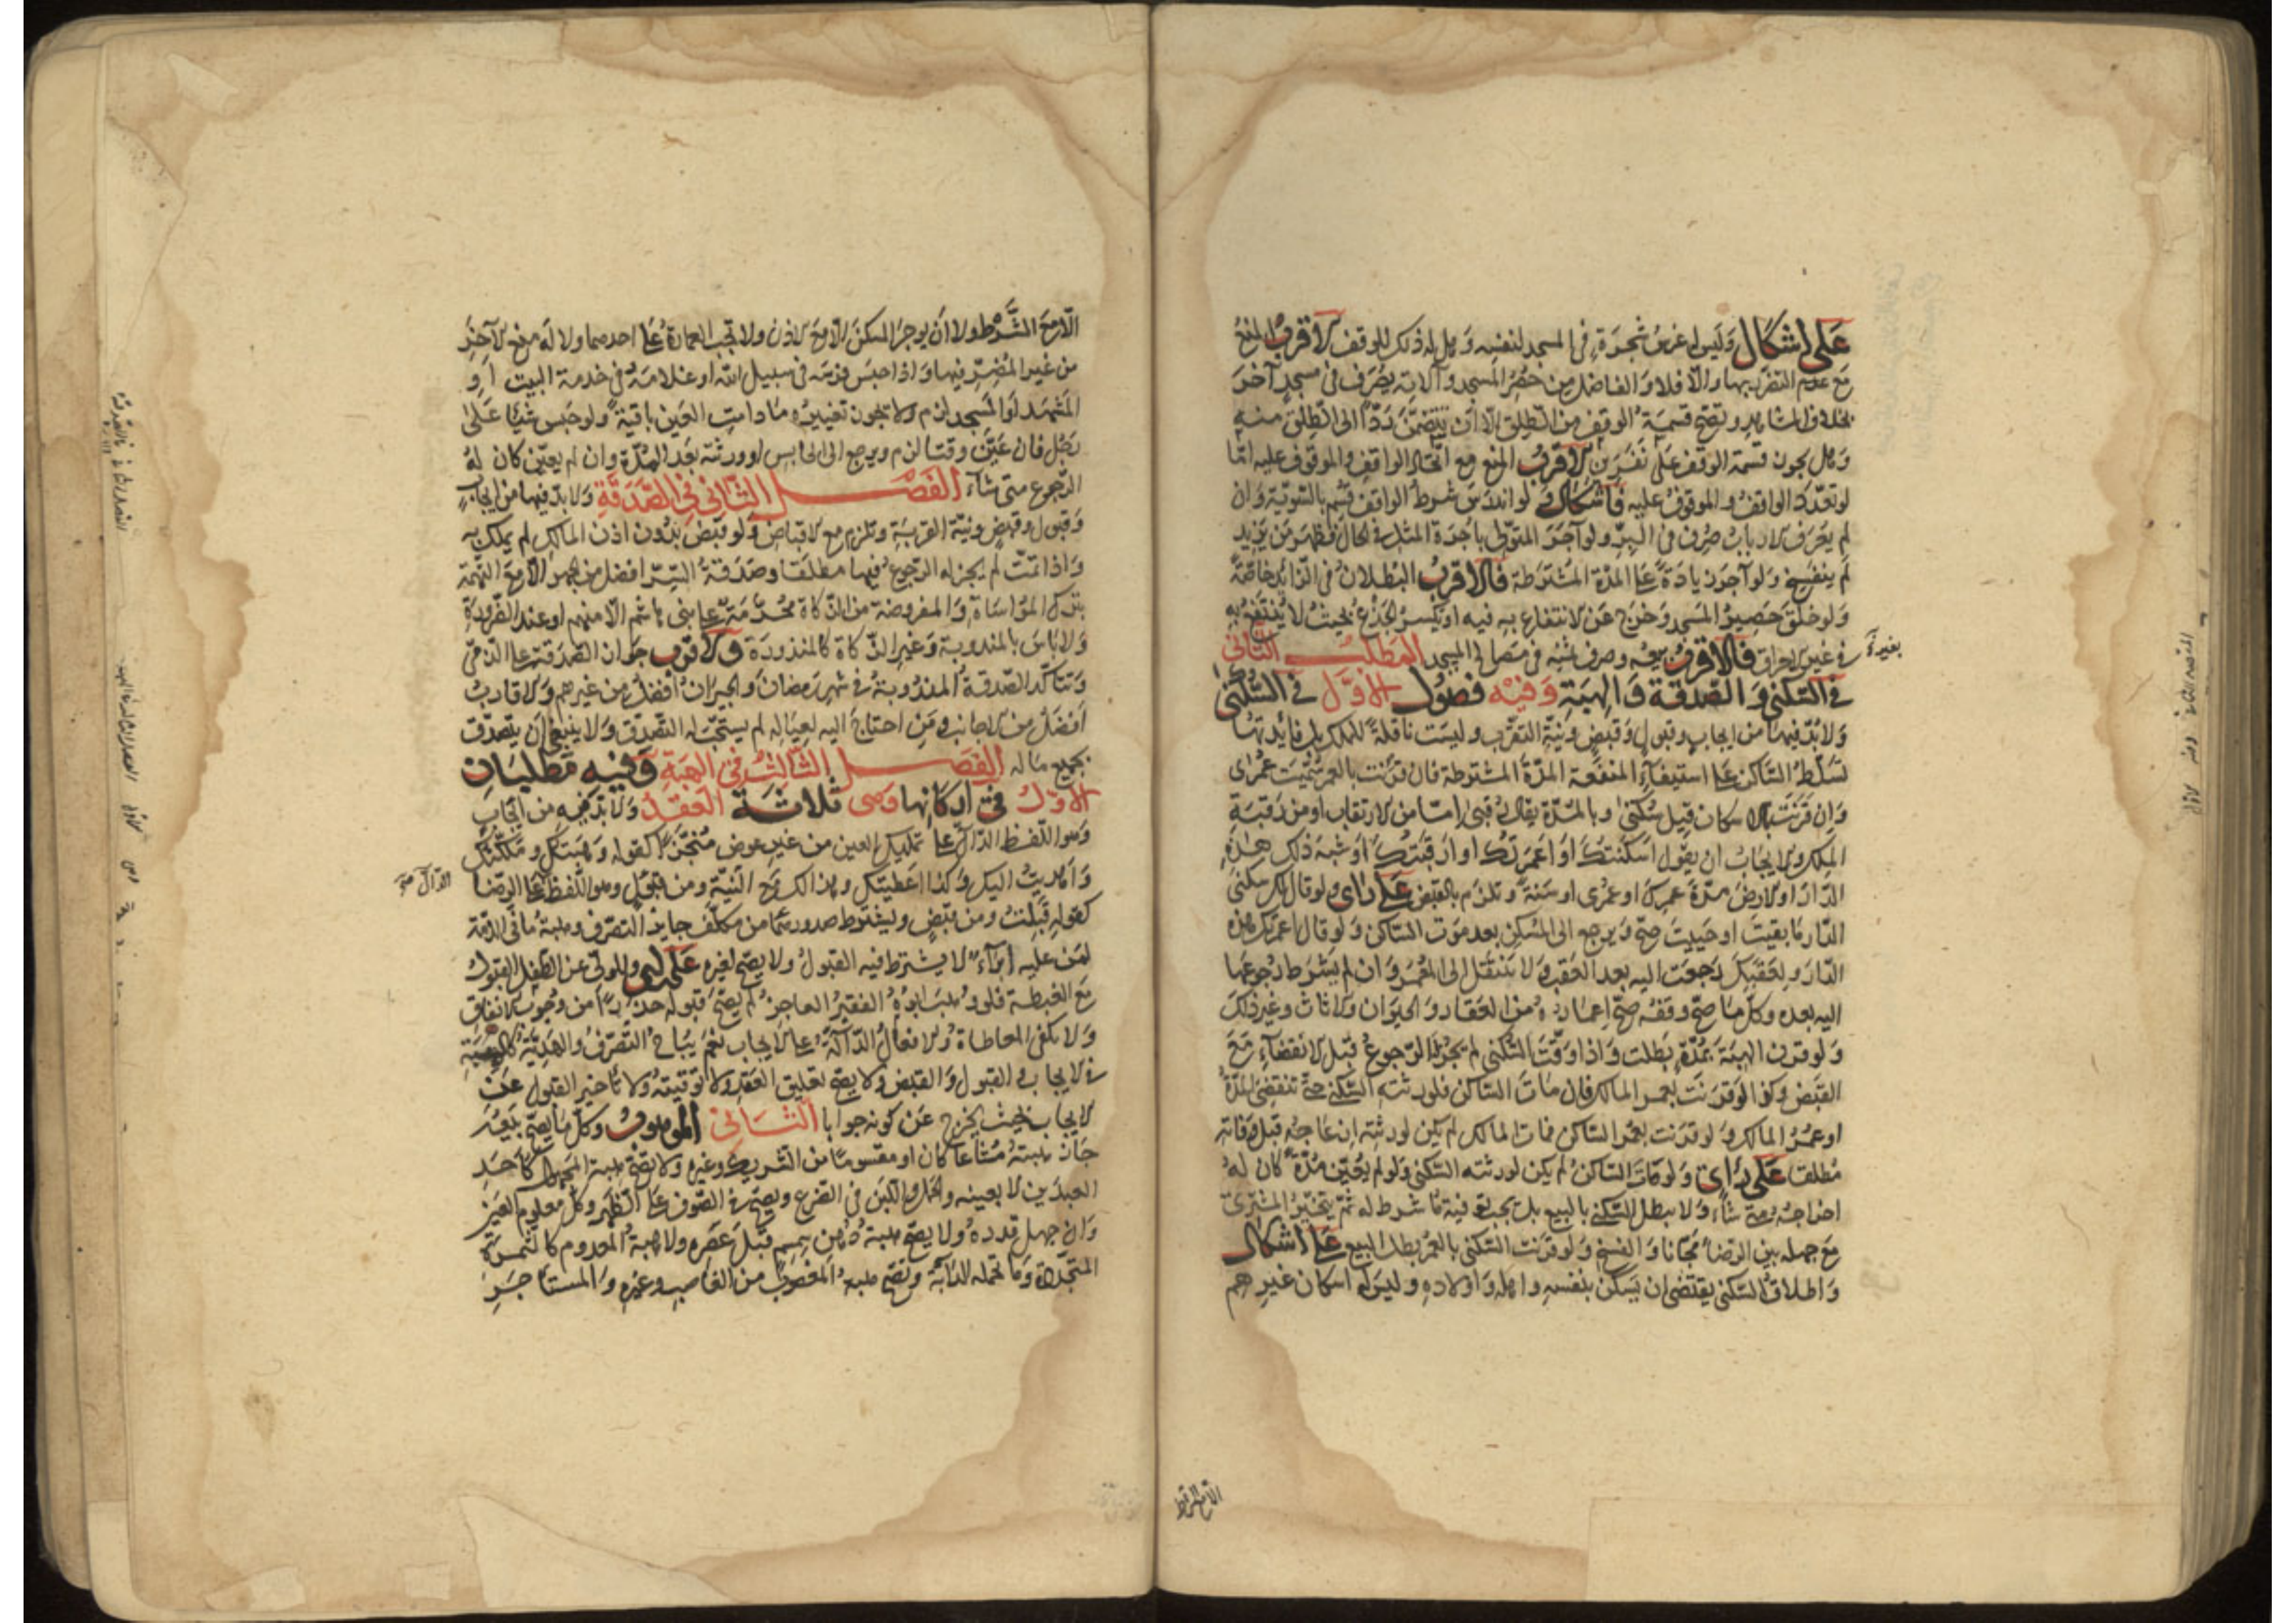 على اشكال وليس له غرس شجرة في المسجد لنفسه وهل له ذلك للوقف الاقرب المنع
مع عدم التضرر بها والا فلا والفاضل من حصر المسجد وآلاته يصرف في مسجد آخر
بخلاف المشاهد وتصح قسمة الوقف من الطلق الا ان يتضمن ردا الى الطلق منه
وهل يجوز قسمة الوقف على نفرين الاقرب المنع مع اتحاد الواقف والموقوف عليه اما
لو تعدد الواقف والموقوف عليه فاشكال ولو اندرس شرط الواقف قسم بالسوية وان
لم يعرف الارباب صرف في البر ولو آجر المتولي باجرة المثل في الحال فظهر من يزيد
لم ينفسخ ولو آجر زيادة على المدة المشترطة فالاقرب البطلان في الزائد خاصة
ولو خلق حصير المسجد وخرج عن الانتفاع به فيه او يكسر الجذع بحيث لا ينتفع به
في غير الاحراق فالاقرب بيعه وصرف ثمنه في مصالح المسجد المطلب الثاني
في السكنى والصدقة والهبة وفيه فصول الاول في السكنى
ولا بد فيها من ايجاب وقبول وقبض ونية التقرب وليست ناقلة للملك بل فائدتها
تسلط الساكن على استيفاء المنفعة المدة المشترطة فان قرنت بالعمر سميت عمرى
وان قرنت بالاسكان قيل سكنى وبالمدة يقال رقبى اما من الارتقاب او من رقبة
الملك والايجاب ان يقول اسكنتك او اعمرتك او ارقبتك او شبه ذلك هذه
الدار او الارض مدة عمرك او عمرى او سنة وتلزم بالقبض على راى ولو قال لك سكنى
الدار ما بقيت او حييت صح ويرجع الى المسكن بعد موت الساكن ولو قال اعمرتك هذه
الدار ولعقبك رجعت اليه بعد العقب ولا تنتقل الى المعمر وان لم يشرط رجوعها
اليه بعده وكل ما صح وقفه صح اعماره من العقار والحيوان والاثاث وغير ذلك
ولو قرن الهبة بمدة بطلت واذا وقت السكنى لم يجز له الرجوع قبل الانقضاء مع
القبض وكذا لو قرنت بعمر المالك فان مات الساكن فلورثته السكنى حتى تنقضى المدة
او عمر المالك ولو قرنت بعمر الساكن فمات المالك لم يكن لورثته ازعاجه قبل وفاته
مطلقا على راى ولو مات الساكن لم يكن لورثته السكنى ولو لم يعين مدة كان له
اخراجه متى شاء ولا يبطل السكنى بالبيع بل يجب توفية ما شرط له ثم يتخير المشترى
مع جهله بين الرضا مجانا والفسخ ولو قرنت السكنى بالعمر بطل البيع على اشكال
واطلاق السكنى يقتضى ان يسكن بنفسه واهله واولاده وليس له اسكان غيرهم
الا مع الشرط
الا مع الشرط ولا ان يوجر المسكن الا مع الاذن ولا تجب العمارة على احدهما ولا له منع الآخر
من غير المضر فيها واذا حبس فرسه في سبيل الله او غلامه في خدمة البيت او
المشهد او المسجد لزم ولا يجوز تغييره ما دامت العين باقية ولو حبس شيئا على
رجل فان عين وقتا لزم ويرجع الى الحابس او ورثته بعد المدة وان لم يعين كان له
الرجوع متى شاء الفصل الثاني في الصدقة ولا بد فيها من ايجاب
وقبول وقبض ونية القربة وتلزم مع الاقباض ولو قبض بدون اذن المالك لم يملك به
واذا تمت لم يجز له الرجوع فيها مطلقا وصدقة السر افضل من الجهر الا مع التهمة
بترك المواساة والمفروضة من الزكاة محرمة على بني هاشم الا منهم او عند الضرورة
ولا باس بالمندوبة وغير الزكاة كالمنذورة والاقرب جواز الصدقة على الذمي
وتتاكد الصدقة المندوبة في شهر رمضان والجيران افضل من غيرهم والاقارب
افضل من الاجانب ومن احتاج اليه لعياله لم يستحب له التصدق ولا ينبغي ان يتصدق
بجميع ماله الفصل الثالث في الهبة وفيه مطلبان
الاول في اركانها وهى ثلاثة العقد ولا بد فيه من ايجاب
وهو اللفظ الدال على تمليك العين من غير عوض منجزا كقوله وهبتك وملكتك
واهديت اليك وكذا اعطيتك وهذا لك مع النية ومن قبول وهو اللفظ على الرضا
كقوله قبلت ومن قبض ويشترط صدورهما من مكلف جايز التصرف وهبة ما في الذمة
لمن عليه ابراء لا يشترط فيه القبول ولا يصح لغيره على راى وللولي عن الطفل القبول
مع الغبطة فلو وهب ابوه الفقير العاجز لم يصح قبوله حذرا من وجوب الانفاق
ولا يكفى المعاطاة والافعال الدالة على الايجاب نعم يباح التصرف والهدية كالهبة
في الايجاب والقبول والقبض ولا يصح تعليق العقد ولا توقيته ولا تاخير القبول عن
الايجاب بحيث يخرج عن كونه جوابا الثاني الموهوب وكل ما يصح بيعه
جاز هبته مشاعا كان او مقسوما من الشريك وغيره ولا يصح هبة المجهول كاحد
العبدين لا بعينه والحمل واللبن في الضرع ويصح في الصوف على الظهر وكل معلوم العين
وان جهل قدره ولا يصح هبة دهن سمسم قبل عصره ولا هبة المعدوم كالثمرة
المتجددة وما تحمله الدابة وتصح هبة المغصوب من الغاصب وغيره والمستاجر